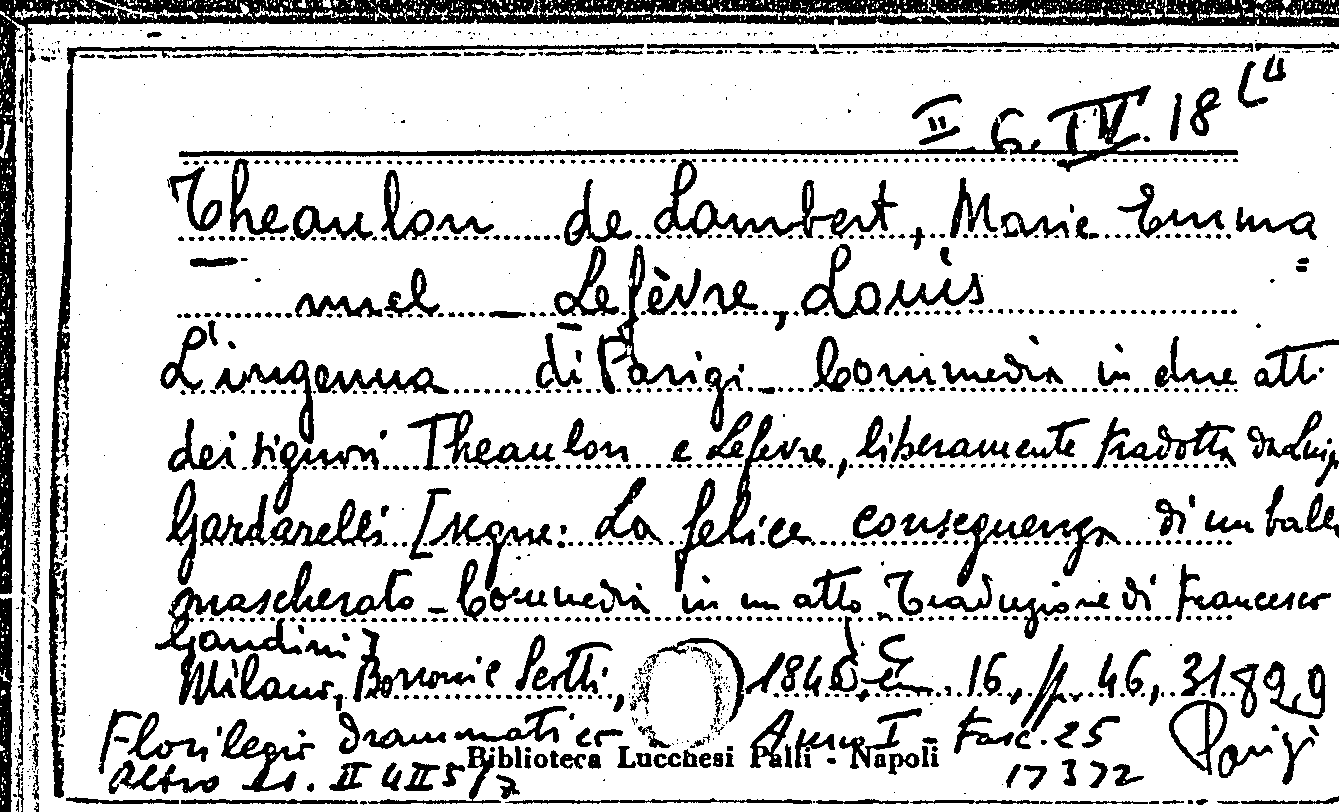 II. 6. IV. 18
Theaulon de Lambert, Marie Emma=
nuel _ Lefèvre, Louis
L'ingenua di Parigi _ Commedia in due atti
dei signori Theaulon e Lefevre, liberamente tradotta da Luigi
Gardarelli [segue: La felice conseguenza di un ballo
mascherato _ Commedia in un atto. Traduzione di Francesco
Gandini]
Milano, Borroni e Scotti, 16, pp. 46, 31
Florilegio drammatico Anno I - Fasc. 25
Parigi
Biblioteca Lucchesi Palli - Napoli
Altro es. II 4 II 5/7 17372